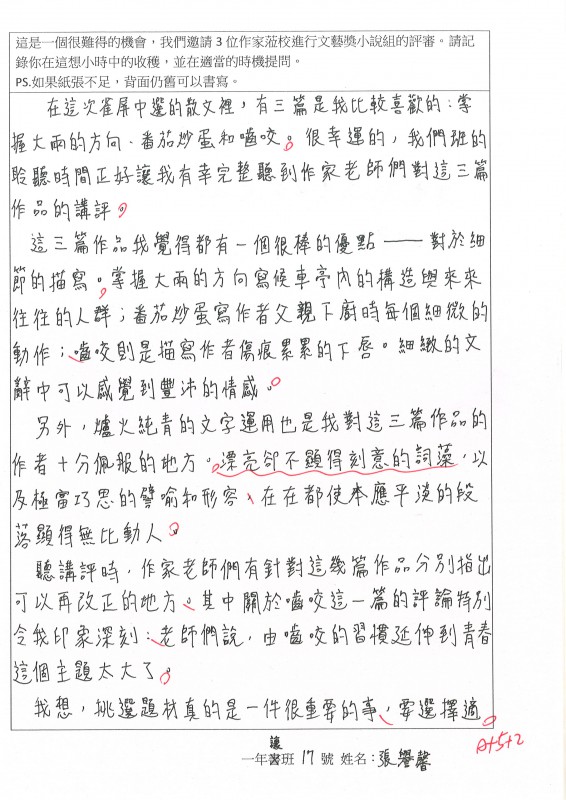 這是一個很難得的機會，我們邀請 3 位作家蒞校進行文藝獎小說組的評審。請記
錄你在這想小時中的收穫，並在適當的時機提問。
PS.如果紙張不足，背面仍舊可以書寫。
在這次雀屏中選的散文裡，有三篇是我比較喜歡的：掌
握大雨的方向、番茄炒蛋和嚙咬。很幸運的，我們班的
聆聽時間正好讓我有幸完整聽到作家老師們對這三篇
作品的講評。
這三篇作品我覺得都有一個很棒的優點——對於細
節的描寫。掌握大雨的方向寫候車亭內的構造與來來
往往的人群；番茄炒蛋寫作者父親下廚時每個細微的
動作；嚙咬則是描寫作者傷痕累累的下唇。細緻的文
辭中可以感覺到豐沛的情感。
另外，爐火純青的文字運用也是我對這三篇作品的
作者十分佩服的地方。漂亮卻不顯得刻意的詞藻，以
及極富巧思的譬喻和形容，在在都使本應平淡的段
落顯得無比動人。
聽講評時，作家老師們有針對這幾篇作品分別指出
可以再改正的地方。其中關於嚙咬這一篇的評論特別
令我印象深刻：老師們說，由嚙咬的習慣延伸到青春
這個主題太大了。
我想，挑選題材真的是一件很重要的事，要選擇適
A+5+2
讓
一年書班 17 號 姓名：張譽馨